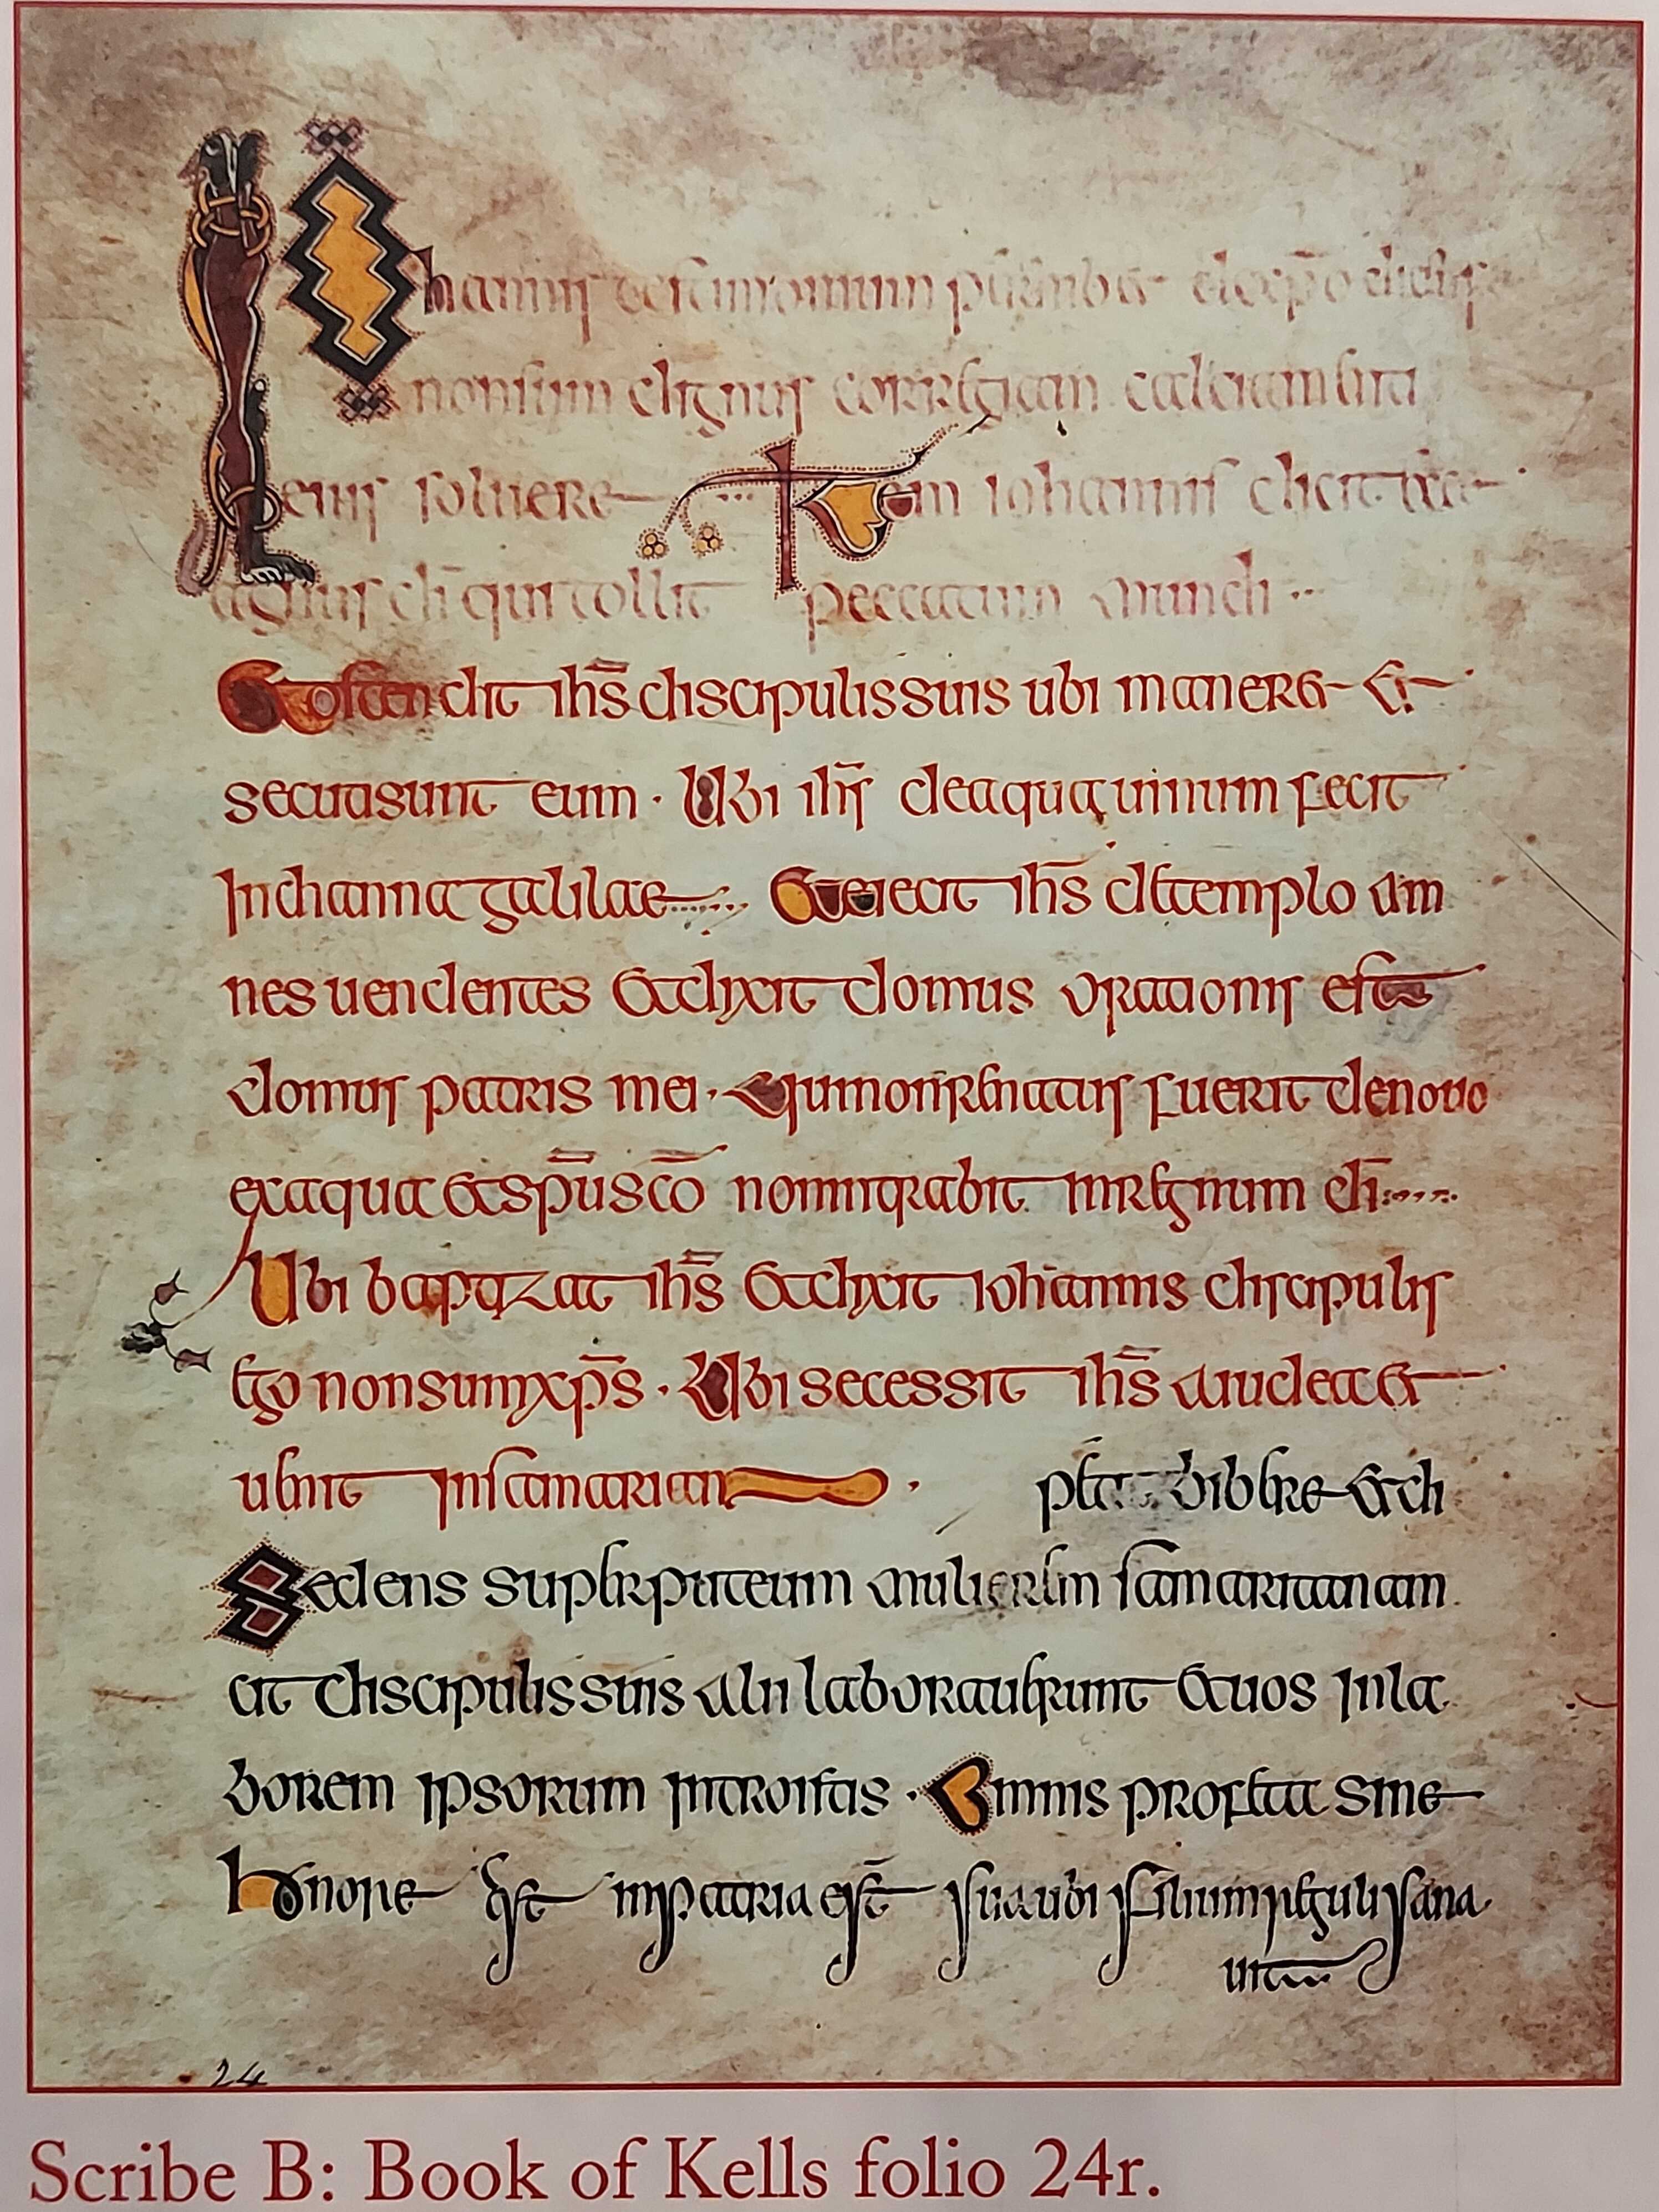 Iohannis testimonium perhibet de xpo dicens
non sum dignus corregiam calciamenti
eius soluere Item iohannis dicit ecce
agnus di qui tollit peccatum mundi
Et ostendit ihs discipulis suis ubi maneret Et
secuti sunt eum · Ubi ihs de aqua uinum fecit
In channa galilae Et eiecit ihs de templo om
nes uendentes et dixit domus orationis est
domus patris mei · Qui non renatus fuerit denouo
ex aqua et spu sco non intrabit in regnum di
Ubi baptizat ihs et dixit iohannis discipulis
Ego non sum xps · Ubi secessit ihs a iudea et
uenit in samarian bibere et di
Sedens super puteum mulierem samaritanam
cit discipulis suis alii laborauerunt et uos in la
borem ipsorum introistis · Omnis profeta sine
honore est in patria sua ubi filium reguli sana
uit
24
Scribe B: Book of Kells folio 24r.